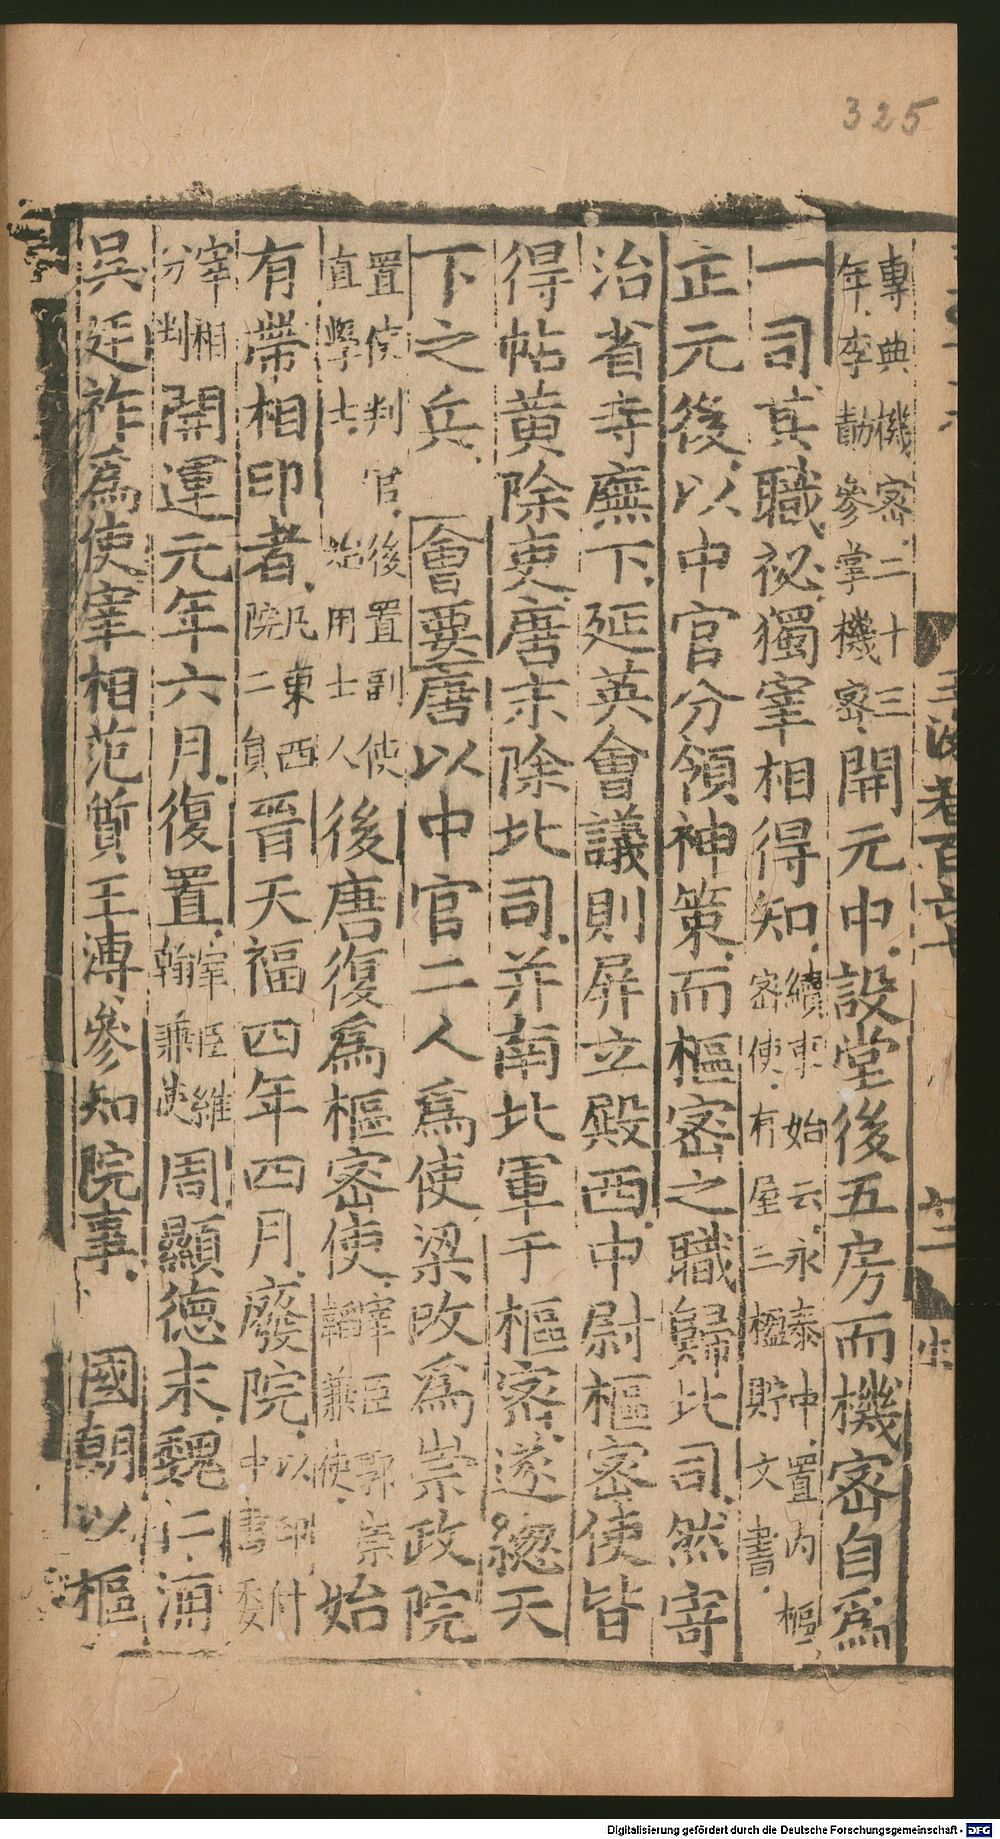 325
玉海卷百六十七
專典機密二十三年李勣參掌機密開元中設堂後五房而機密自爲
一司其職祕獨宰相得知續事始云永泰中置內樞密使有屋三楹貯文書
正元後以中官分領神策而樞密之職歸北司然寄
治省寺廡下延英會議則屏立殿西中尉樞密使皆
得帖黃除吏唐末除北司并南北軍于樞密遂緫天
下之兵會要唐以中官二人爲使梁改爲崇政院
置使判官後置副使直學士始用士人後唐復爲樞密使宰臣郭崇韜兼使始
有帶相印者凡東西院二員晉天福四年四月廢院以印付中書委
宰相分判開運元年六月復置宰臣維翰兼使周顯德末魏仁浦
吳廷祚爲使宰相范質王溥參知院事國朝以樞
Digitalisierung gefördert durch die Deutsche Forschungsgemeinschaft - DFG